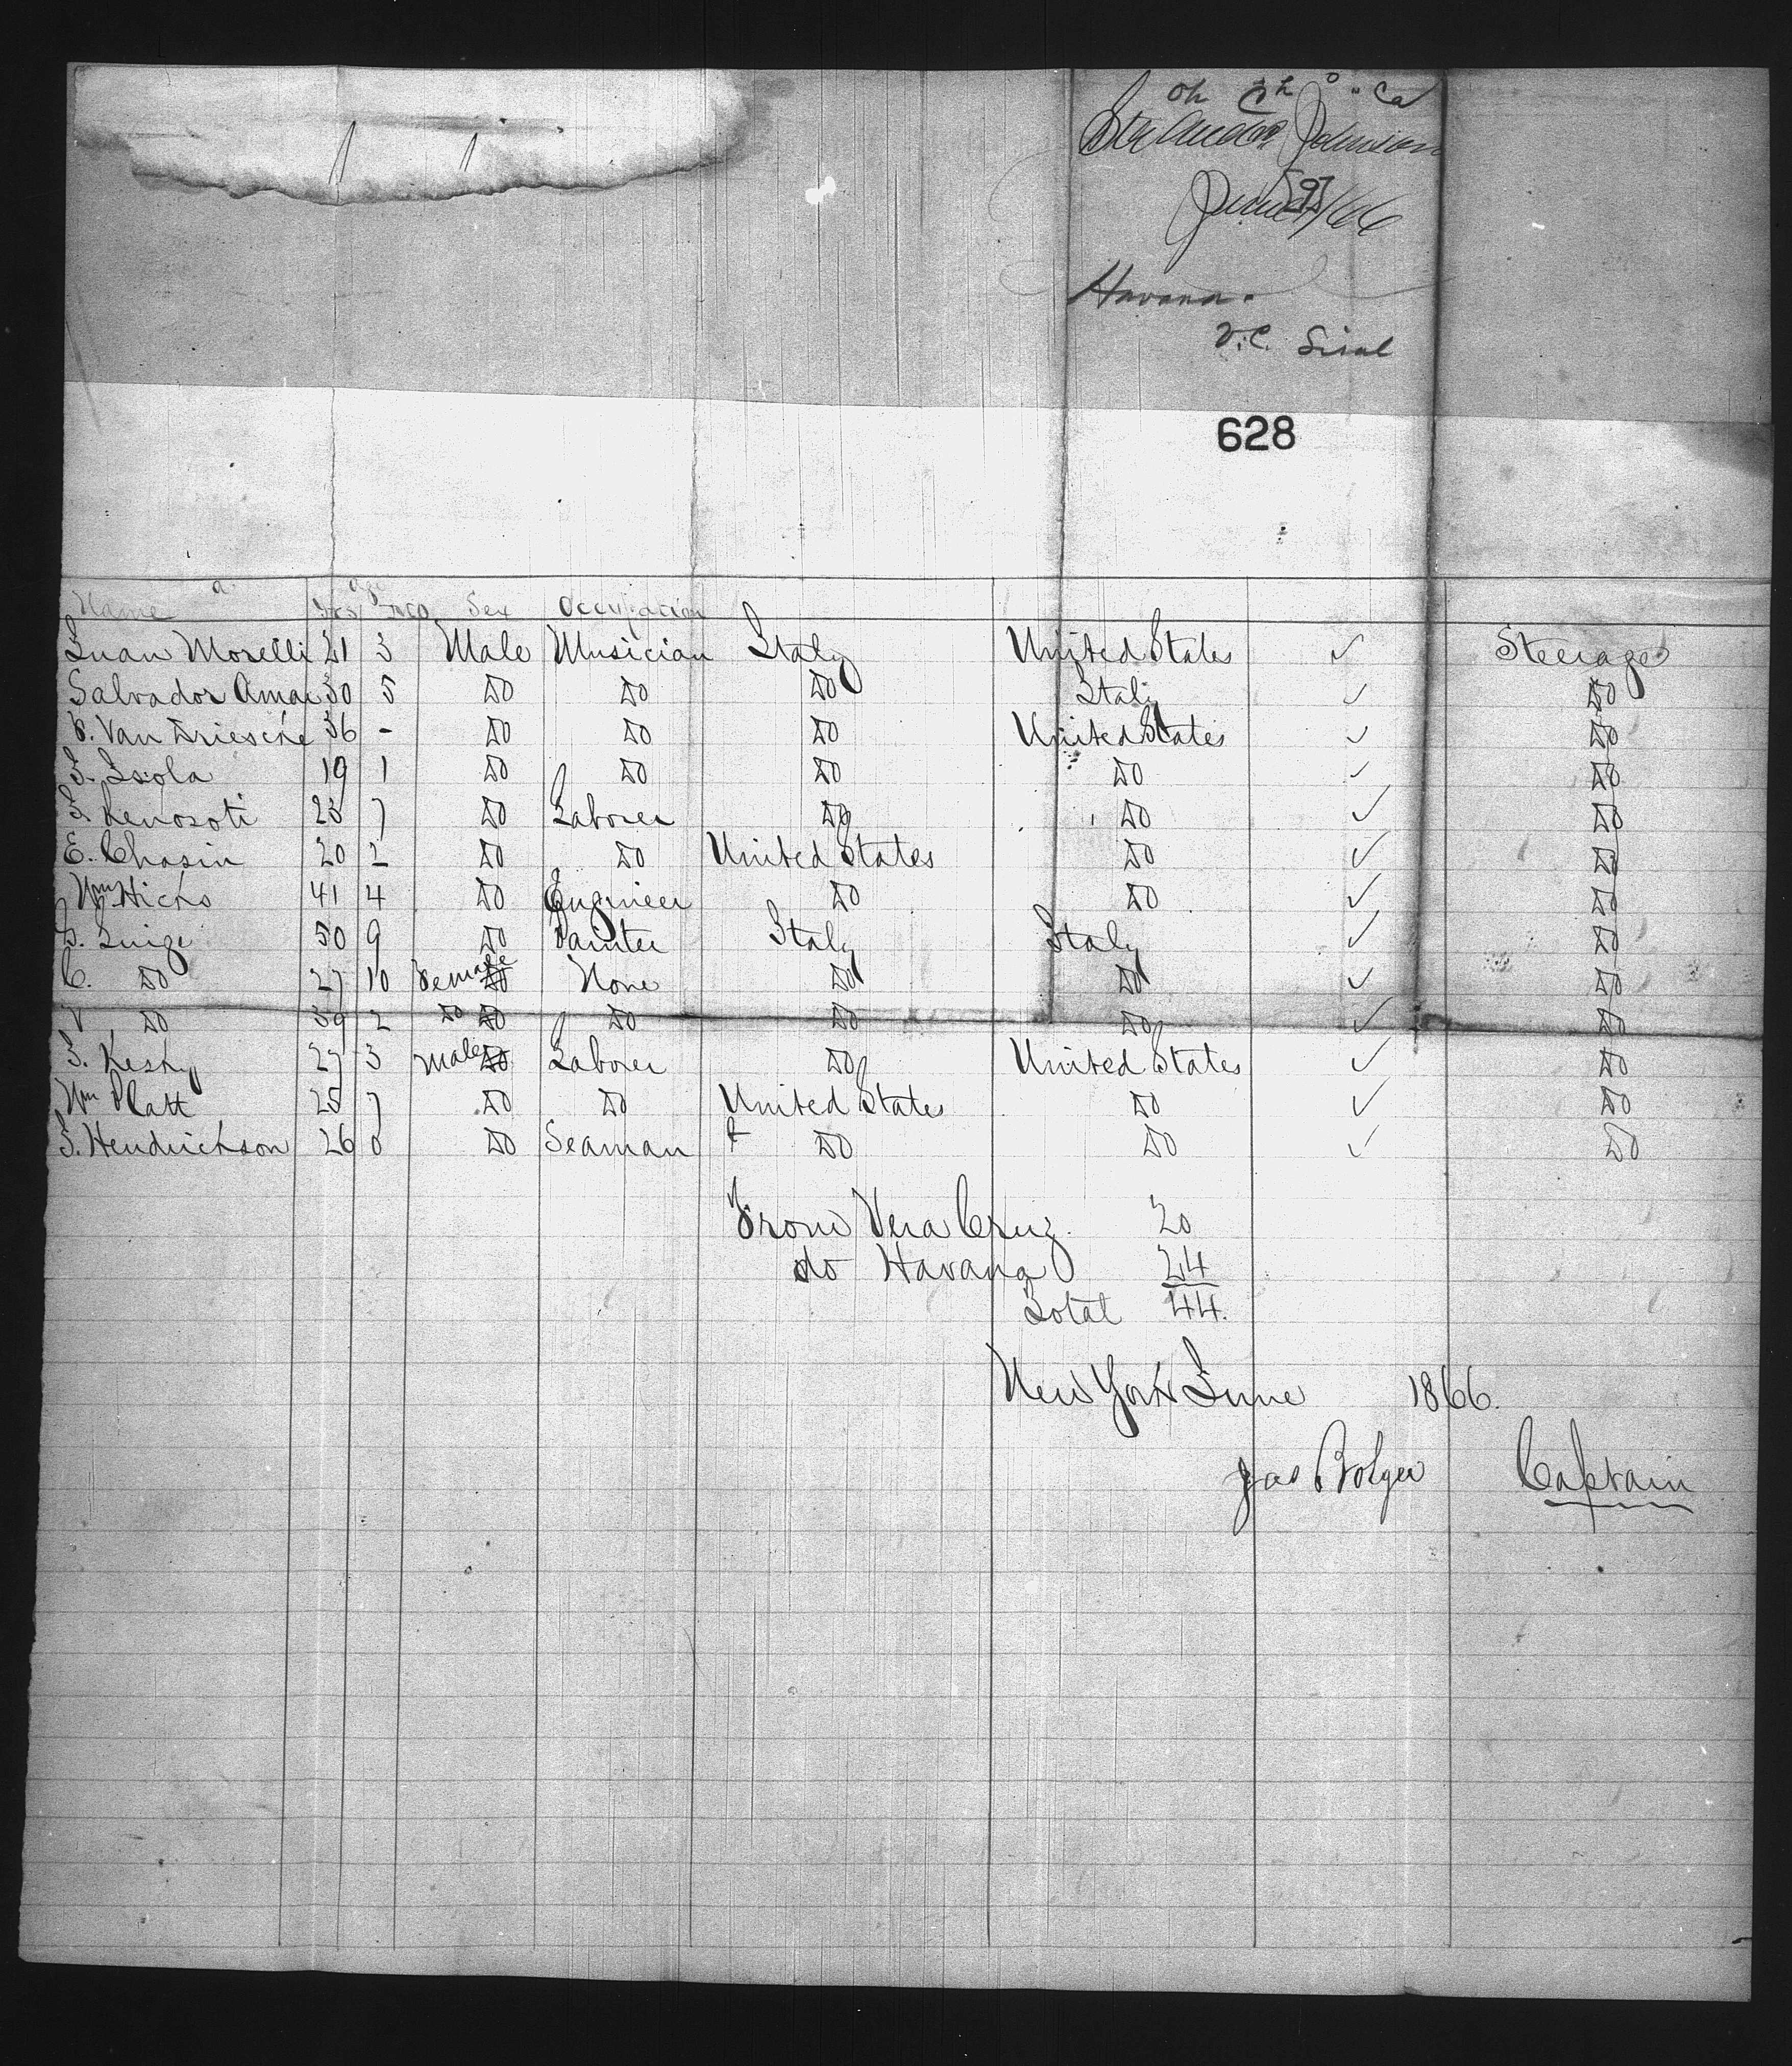 Str Andw Johnson
June 9/66
Havana.
V.C. Sisal
628
Name Age Sex Occupation
Juan Morelli 21 3 Male Musician Italy United States ✓ Steerage
Salvador Amar 30 5 Do Do Do Italy ✓ Do
V. Van Driesche 36 - Do Do Do United States ✓ Do
J. Isola 19 1 Do Do Do Do ✓ Do
23 7 Do Laborer Do Do ✓ Do
E. Chasin 20 2 Do Do United States Do ✓ Do
Wm Hicks 41 4 Do Engineer Do Do ✓ Do
Luigi 50 9 Do Painter Italy Italy ✓ Do
C. Do 27 10 Female Do None Do Do ✓ Do
V Do 39 2 Do Do Do Do Do ✓ Do
27 3 Male Do Laborer Do United States ✓ Do
Wm Platt 25 7 Do Do United States Do ✓ Do
J. Hendrickson 26 0 Do Seaman Do Do ✓ Do
From Vera Cruz. 20
do Havana 24
Total 44.
New York June 1866.
Jas Bolger Captain